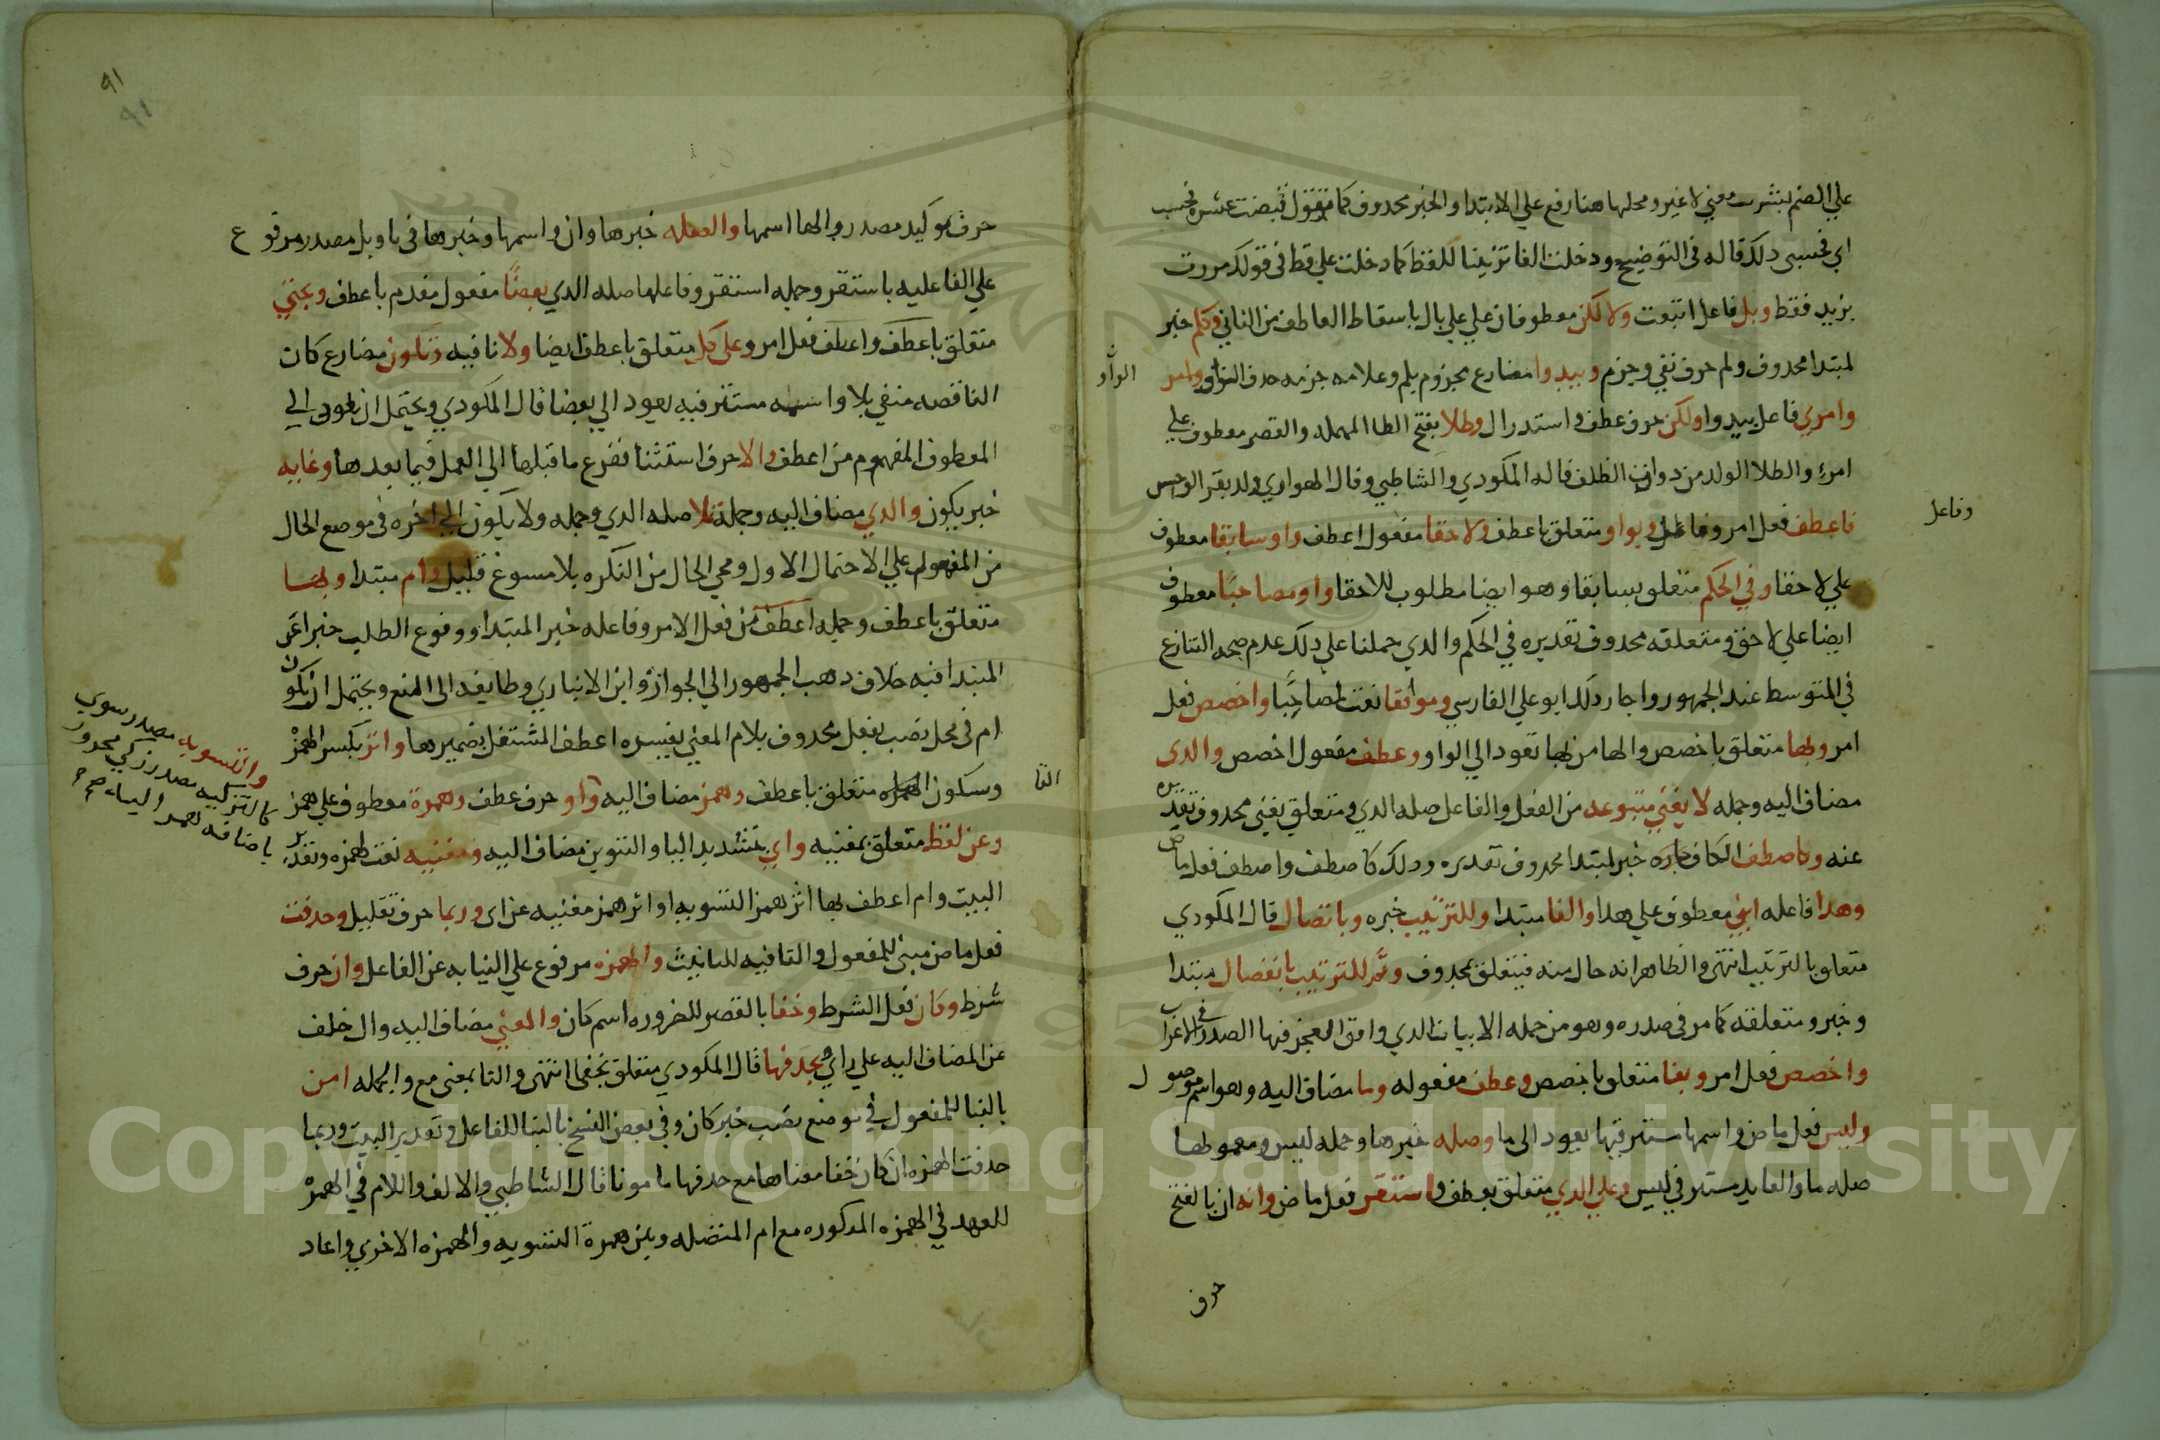 علي الضم لبشرت معني لا غير ومحلها هنا رفع علي الابتدا والخبر محدوف كما تقول قبضت عشره فحسب
اي فحسبي دلك قاله في التوضيح ودخلت الفا تزيينا للفظ كما دخلت علي قط في قولك مررت
بزيد فقط وبل فاعل اتبعت ولا لكن معطوفان علي بل باسقاط العاطف من الثاني وكلم خبر
لمبتدا محدوف ولم حرف نفي وجزم ويبدوا مضارع مجزوم بلم وعلامه جزمه حدف الواو وامر
الواو
وامرئ فاعل يبدوا ولكن حرف عطف واستدراك وطلا بفتح الطا المهمله والقصر معطوف علي
امرئ والطلا الولد من دوات الظلف قاله المكودي والشاطبي وقال الهواري ولد بقر الوحش
فاعطف فعل امر وفاعل وبواو متعلق باعطف ولاحقا مفعول اعطف واو سابقا معطوف
وفاعل
علي لاحقا وفي الحكم متعلق بسابقا وهو ايضا مطلوب للاحقا واو مصاحبا معطوف
ايضا علي لاحق ومتعلقه محدوف تقديره في الحكم والدي حملنا علي دلك عدم صحه التنازع
في المتوسط عند الجمهور واجاز دلك ابو علي الفارسي وموافقا نعت لمصاحبا واخصص فعل
امر وبها متعلق باخصص والها من بها تعود الي الواو وعطف مفعول اخصص والدي
مضاف اليه وجمله لا يغني متبوعه من الفعل والفاعل صله الدي ومتعلق يغني محدوف تقديره
عنه وكاصطف الكاف جاره خبر لمبتدا محدوف تقديره ودلك كاصطف واصطف فعل ماض
وهدا فاعله ابني معطوف علي هدا والفا مبتدا وللترتيب خبره وباتصال قال المكودي
متعلق بالترتيب انتهي والظاهر انه حال منه فيتعلق بمحدوف وثم للترتيب بانفصال مبتدا
وخبر ومتعلقه كما مر في صدره وهو من جمله الابيات الدي وافق العجز فيها الصدر في الاعراب
واخصص فعل امر وبفا متعلق باخصص وعطف مفعوله وما مضاف اليه وهو اسم موصول
وليس فعل ماض واسمها مستتر فيها يعود الي ما وصله خبرها وجمله ليس ومعمولها
صله ما والعايد مستتر في ليس وعلي الدي متعلق بعطف واستقر فعل ماض وانه ان بالفتح
حرف
٩١
٩١
حرف توكيد مصدر والها اسمها والعمله خبرها وان واسمها وخبرها في تاويل مصدر مرفوع
علي الفاعليه باستقر وجمله استقر وفاعلها صله الدي بعضا مفعول مقدم باعطف وبحتي
متعلق باعطف واعطف فعل امر وعلي كل متعلق باعطف ايضا ولا نافيه وتكون مضارع كان
الناقصه منفي بلا واسمه مستتر فيه يعود الي بعضا قال المكودي ويحتمل ان يعود الي
المعطوف المفهوم من اعطف والا حرف استثنا ففرغ ما قبلها الي العمل فيما بعدها وغايه
خبر يكون والدي مضاف اليه وجملة تلا صله الدي وجمله ولا يكون الي اخره في موضع الحال
من المفعول علي الاحتمال الاول ومجي الحال من النكره بلا مسوغ قليل وام مبتدا وبها
متعلق باعطف وجمله اعطف من فعل الامر وفاعله خبر المبتدا ووقوع الطلب خبرا عن
المبتدا فيه خلاف دهب الجمهور الي الجواز وابن الانباري وطايفه الي المنع ويحتمل ان تكون
ام في محل نصب بفعل محدوف بلام المعني يفسره اعطف المشتغل بضميرها واثر بكسر الهمزة
وسكون متعلق باعطف وهمز مضاف اليه واو حرف عطف وهمزة معطوف علي همز
الثا
والتسويه مصدر سوي
كالتزكيه مصدر زكي مجرور
باضافه همز اليه صح
وعن لفظ متعلق بمغنيه واي بتشديد اليا والتنوين مضاف اليه ومغنيه نعت لهمزه وتقدير
البيت وام اعطف بها اثر همز التسويه او اثر همز مغنيه عن اي وربما حرف تقليل وحدفت
فعل ماض مبني للمفعول والتا فيه للتانيث والهمزه مرفوع علي النيابه عن الفاعل وان حرف
شرط وكان فعل الشرط وخفا بالقصر للضروره اسم كان والمعني مضاف اليه وال خلف
عن المضاف اليه علي راي وبحدفها قال المكودي متعلق بخفي انتهي والتا بمعني مع والجمله امن
بالبنا للمفعول في موضع نصب خبر كان وفي بعض النسخ بالبنا للفاعل وتقدير البيت وربما
حدفت الهمزه ان كان خفا معناها مع حدفها مامونا قال الشاطبي والالف واللام في الهمزة
للعهد في الهمزه المدكوره مع ام المتصله وبين همزة التسويه والهمزه الاخري واعاد